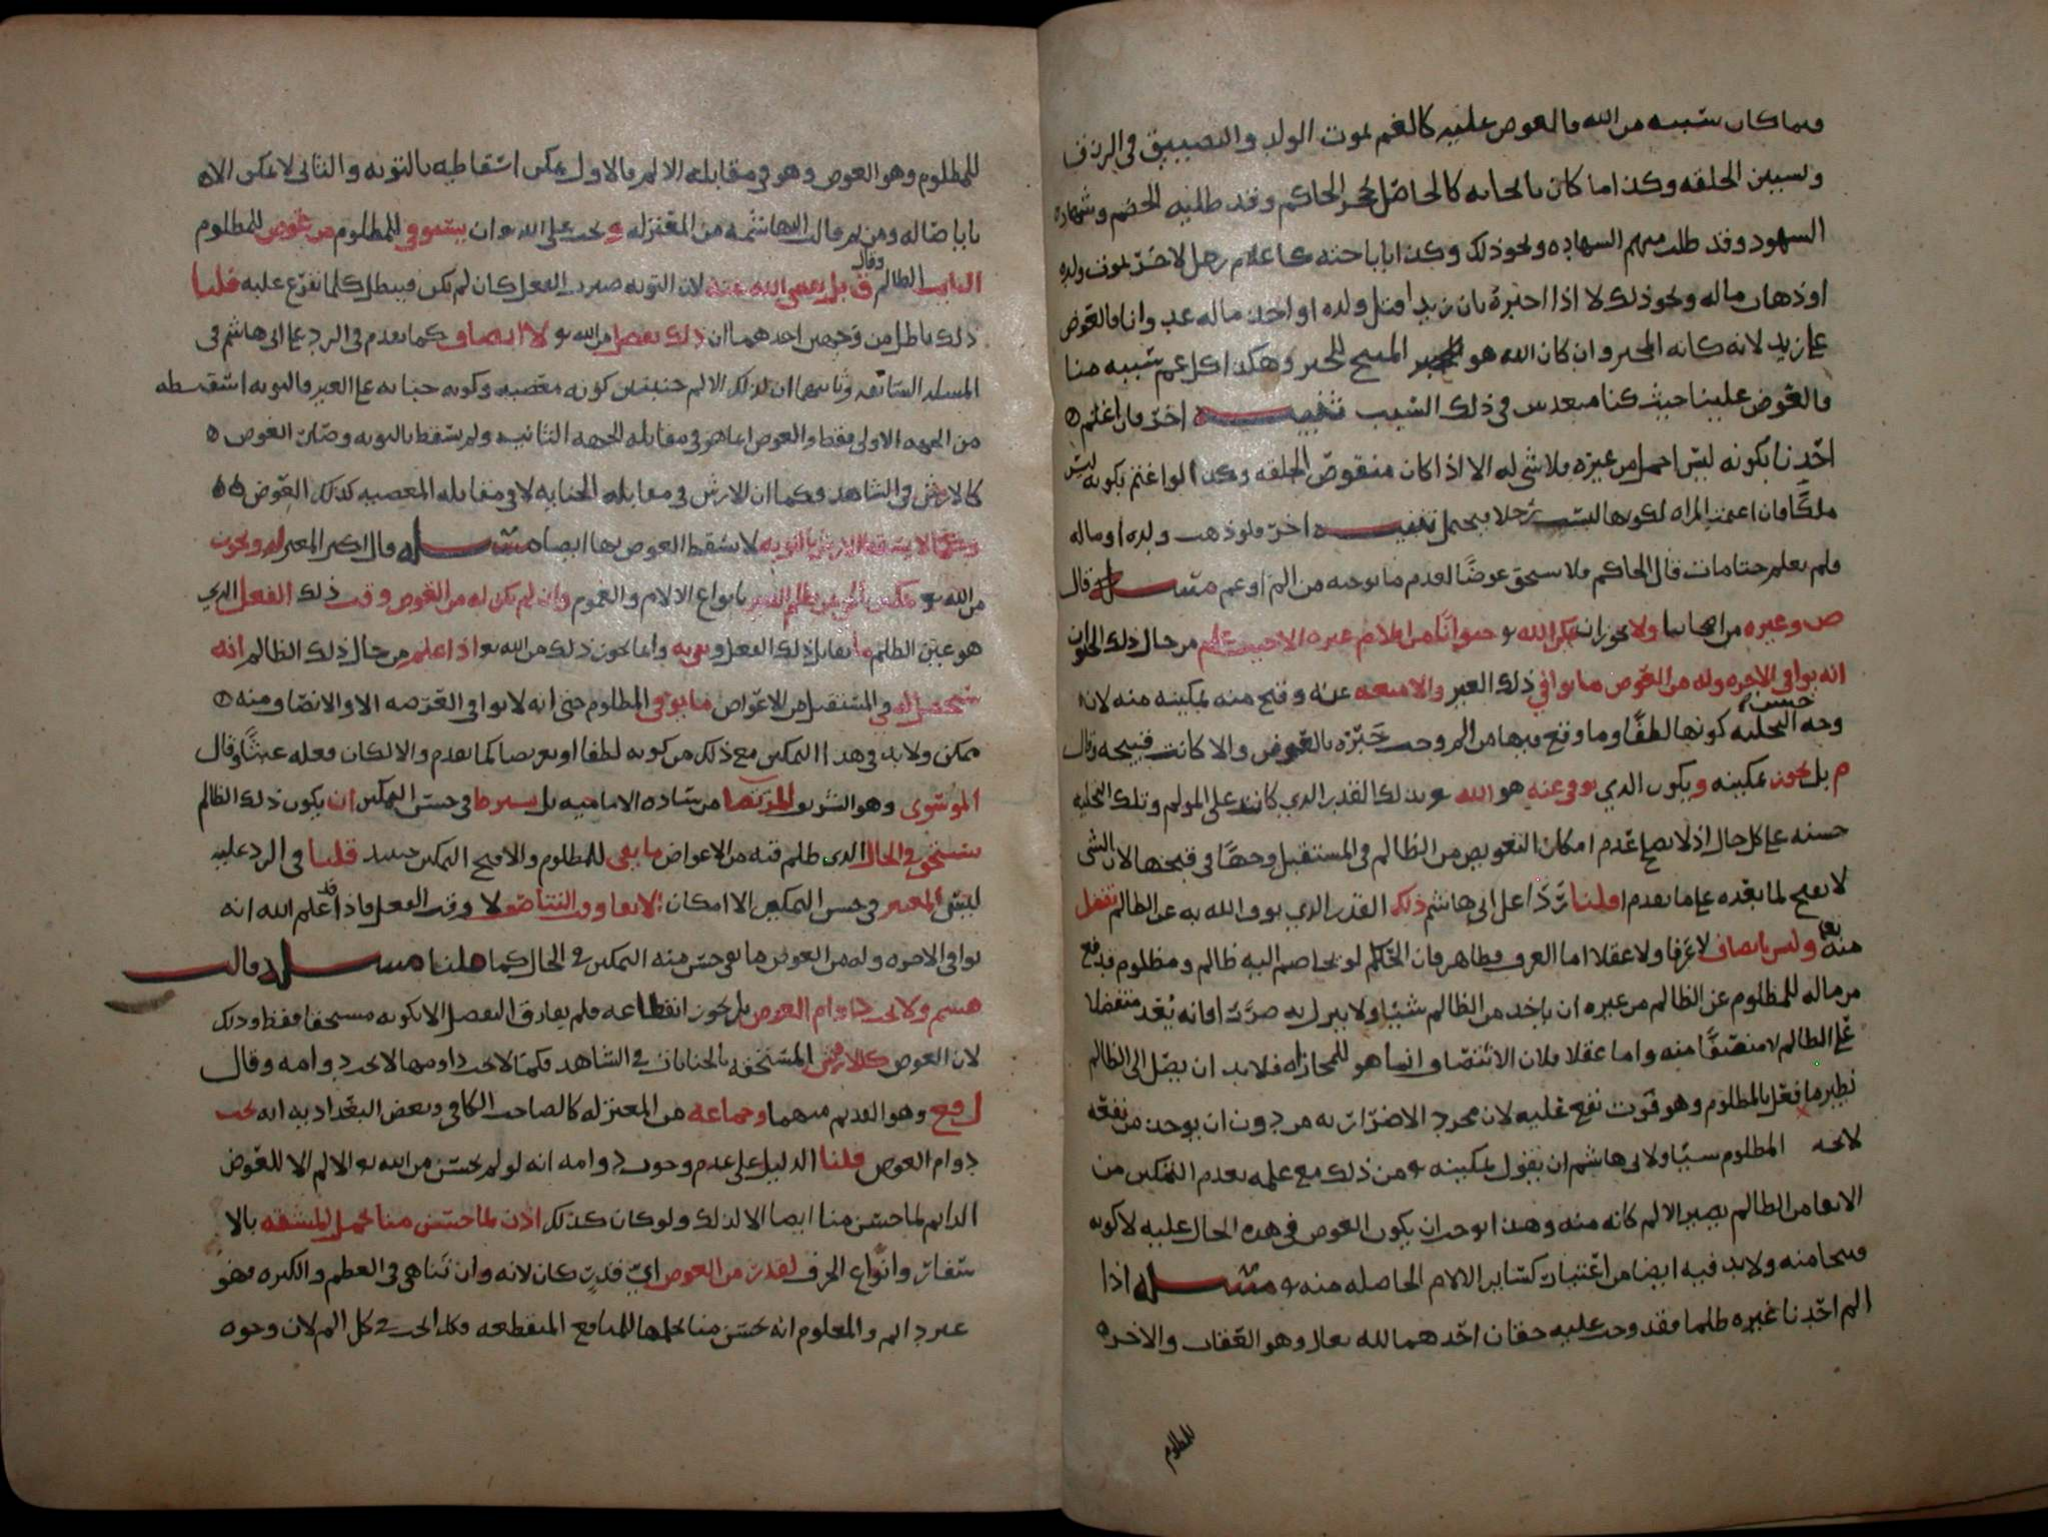 وما كان سببه من الله فالعوض عليه كالغم بموت الولد والتضييق في الرزق
وتشيين الخلقه وكذا ما كان بالجابه كالحاصل بحجر الحاكم وقد طلبه الخصم وشهاده
الشهود وقد طلب منهم الشهاده ونحو ذلك وكذا باباحته كاعلام رجل لاخر بموت ولده
او ذهاب ماله ونحو ذلك لا اذا اخبره بان زيدا قتل ولده او اخذ ماله عدوانا فالعوض
على زيد لانه كانه المخبر وان كان الله هو المبيح للخبر وهكذا كل غم سببه منا
فالعوض علينا حيث كنا متعدين في ذلك السبب تنبيه اخر فان اغتم
احدنا بكونه ليس اجمل من غيره فلا شي له الا اذا كان منقوص الخلقه وكذا لو اغتم بكونه ليس
ملكا فان اغتمت المراه لكونها ليست رجلا فيحتمل تنبيه اخر فلو ذهب ولده او ماله
ولم يعلم حتا مات قال الحاكم فلا يستحق عوضا لعدم ما يوجبه من الم او غم مسله قال
ص وغيره من اصحابنا ولا يجوز ان يمكن الله تع حيوانا من ايلام غيره الا حيث علم من حال ذلك الحيوان
انه يوافي الاخره وله من العوض ما يوافي ذلك الغير والا منعه عنه وقبح منه تمكينه منه لان
وجه حسن التخليه كونها لطفا وما وقع فيها من الم وجب جبره بالعوض والا كانت قبيحه وقال
م بل يجوز تمكينه ويكون الذي يوفي عنه هو الله تع بذلك القدر الذي كان على المولم وتلك التخليه
حسنه على كل حال اذ لا يصلح عدم امكان التعويض من الظالم في المستقبل وجها في قبحها لان الشي
لا يقبح لما بعده على ما تقدم قلنا ردا على ابي هاشم ذلك القدر الذي يوفي الله به عن الظالم تفضل
منه تعا وليس بانصاف لا عرفا ولا عقلا اما العرف فظاهر فان الحاكم لو تخاصم اليه ظالم ومظلوم فدفع
من ماله للمظلوم عن الظالم من غيره ان ياخذ من الظالم شيا ولا ينزل به ضررا فانه يعد متفضلا
على الظالم لا منصفا منه واما عقلا فلان الانتصاف انما هو للمجازاه فلا بد ان يصل الى الظالم
نظير ما فعل بالمظلوم وهو فوت نفع عليه لان مجرد الاضرار به من دون ان يوخذ من نفعه
لا نفع المظلوم شيا ولابي هاشم ان يقول تمكينه تع من ذلك مع علمه بعدم التمكين من
الايفا من الظالم يصير الالم كانه منه وهذا يوجب ان يكون العوض في هذه الحال عليه لا كونه
قبيحا منه ولا بد فيه ايضا من اعتبار كساير الالام الحاصله منه تع مسله اذا
الم احدنا غيره ظلما فقد وجب عليه حقان احدهما لله تعالى وهو العقاب والاخر
للمظلوم
للمظلوم وهو العوض وهو في مقابله الالم فالاول يمكن اسقاطه بالتوبه والثاني لا يمكن الا
بايصاله ومن ثم قالت البهاشمه من المعتزله ويجب على الله تع ان يستوفي للمظلوم من عوض المظلوم
التايب الظالم وقال ق بل يعوض الله عنه لان التوبه صيرت الفعل كان لم يكن فيبطل كلما تفرع عليه قلنا
ذلك باطل من وجهين احدهما ان ذلك تفضل من الله تع لا انصاف كما تقدم في الرد على ابي هاشم في
المسله السابقه وثانيهما ان لذلك الالم جنبتين كونه معصيه وكونه جنايه على الغير والتوبه اسقطته
من الجهه الاولى فقط والعوض انما هو في مقابله الجهه الثانيه ولم يسقط بالتوبه وصار العوض
كالارش في الشاهد وكما ان الارش في مقابله الجنايه لا في مقابله المعصيه كذلك العوض
وكما لا يسقط الارش بالتوبه لا يسقط العوض بها ايضا مسله قال اكثر المعتزله ويجوز
من الله تع تمكين من يظلم الغير بانواع الالام والغموم وان لم يكن له من العوض وقت ذلك الفعل الذي
هو عين الظلم ما يقابل ذلك الفعل ويفي به وانما يجوز ذلك من الله تع اذا علم من حال ذلك الظالم انه
سيحصل له في المستقبل من الاعواض ما يوفي المظلوم حتى انه لا يوافي العرصه الا والانتصاف منه
ممكن ولا بد في هذا التمكين مع ذلك من كونه لطفا او تعويضا لما تقدم والا لكان فعله عبثا وقال
الموسوي وهو الشريف المرتضا من ساده الاماميه بل يشرط في حسن التمكين ان يكون ذلك الظالم
يستحق في الحال الذي ظلم فيه من الاعواض ما يفي للمظلوم والا قبح التمكين حينيذ قلنا في الرد عليه
ليس المعتبر في حسن التمكين الا امكان الايفا وقت التناصف لا وقت الفعل فاذا قد علم الله انه
يوافي الاخره وله من العوض ما يفي حسن منه التمكين في الحال كما قلنا مسله قالت
هشم ولا يجب دوام العوض بل يجوز انقطاعه فلم يفارق التفضل الا بكونه مستحقا فقط وذلك
لان العوض كالارش المستحقه بالجنايات في الشاهد فكما لا يجب دوامها لا يجب دوامه وقال
ل وع وهو القديم منهما وجماعه من المعتزله كالصاحب الكافي وبعض البغداديه انه يجب
دوام العوض قلنا الدليل على عدم وجوب دوامه انه لو لم يحسن من الله تع الالم الا للعوض
الدايم لما حسن منا ايضا الا لذلك ولو كان كذلك اذن لما حسن منا تحمل المشقه بالا
سفار وانواع الحرف لقدر من العوض اي قدر كان لانه وان تناهى في العظم والكثره فهو
غير دايم والمعلوم انه يحسن منا تحملها للمنافع المنقطعه فكذا يجب في كل الم لان وجوه